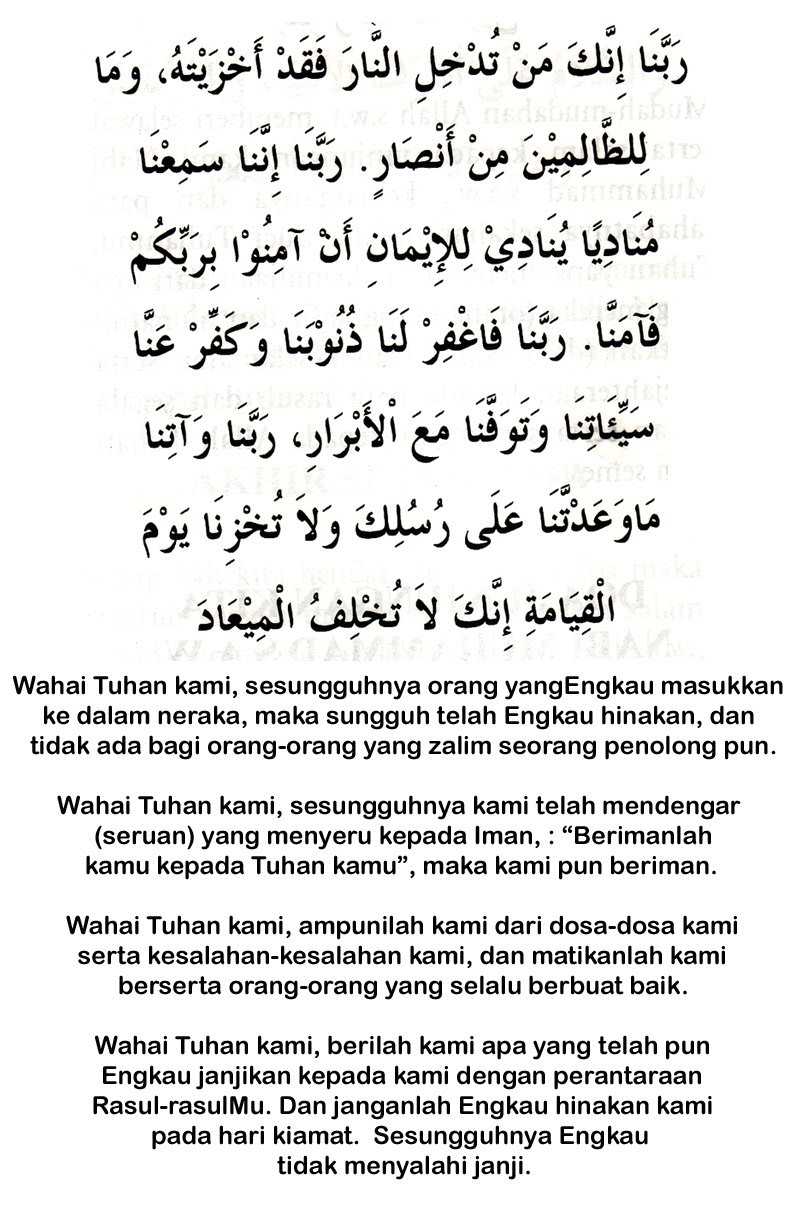 رَبَّنَا إِنَّكَ مَنْ تُدْخِلِ النَّارَ فَقَدْ أَخْزَيْتَهُ، وَمَا
لِلظَّالِمِيْنَ مِنْ أَنْصَارٍ. رَبَّنَا إِنَّنَا سَمِعْنَا
مُنَادِيًا يُنَادِيْ لِلإِيْمَانِ أَنْ آمِنُوْا بِرَبِّكُمْ
فَآمَنَّا. رَبَّنَا فَاغْفِرْ لَنَا ذُنُوْبَنَا وَكَفِّرْ عَنَّا
سَيِّئَاتِنَا وَتَوَفَّنَا مَعَ الْأَبْرَارِ، رَبَّنَا وَآتِنَا
مَاوَعَدْتَّنَا عَلَى رُسُلِكَ وَلاَ تُخْزِنَا يَوْمَ
الْقِيَامَةِ إِنَّكَ لاَ تُخْلِفُ الْمِيْعَادَ
Wahai Tuhan kami, sesungguhnya orang yangEngkau masukkan
ke dalam neraka, maka sungguh telah Engkau hinakan, dan
tidak ada bagi orang-orang yang zalim seorang penolong pun.
Wahai Tuhan kami, sesungguhnya kami telah mendengar
(seruan) yang menyeru kepada Iman, : “Berimanlah
kamu kepada Tuhan kamu”, maka kami pun beriman.
Wahai Tuhan kami, ampunilah kami dari dosa-dosa kami
serta kesalahan-kesalahan kami, dan matikanlah kami
berserta orang-orang yang selalu berbuat baik.
Wahai Tuhan kami, berilah kami apa yang telah pun
Engkau janjikan kepada kami dengan perantaraan
Rasul-rasulMu. Dan janganlah Engkau hinakan kami
pada hari kiamat. Sesungguhnya Engkau
tidak menyalahi janji.